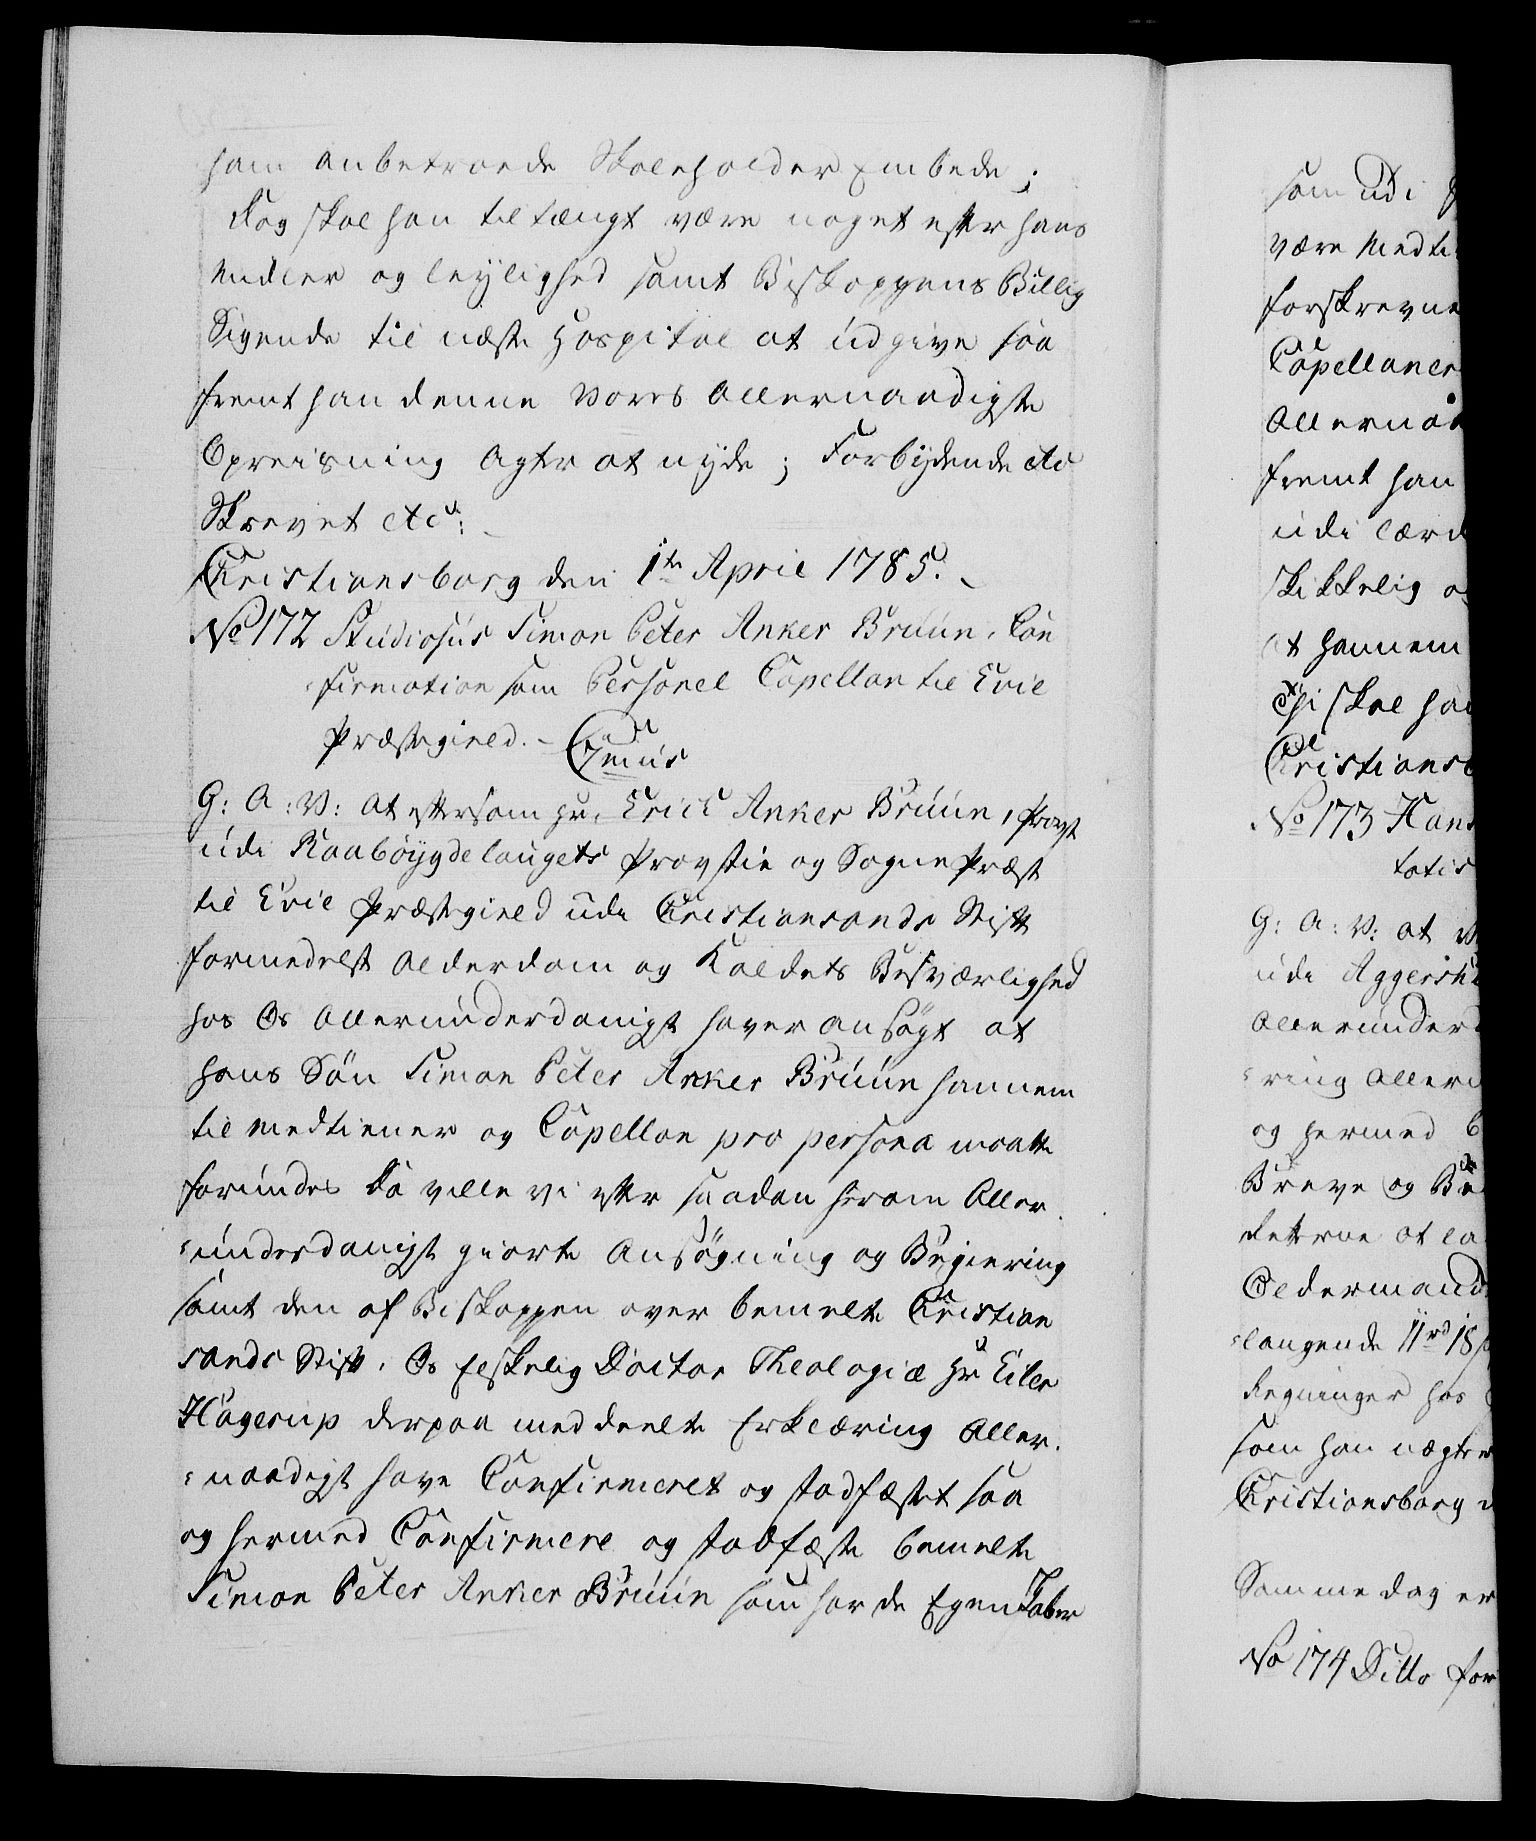 ham anbetroede Skoleholder Embede;
dog skal han tiltængt være noget efter hans
Midler og leylighed samt Biskoppens Billig
Sigende til næste Hospital at udgive saa
fremt han denne Vores Allernaadigste
Opreisning agter at nyde; Forbydende etc
Skrevet etc:
Christiansborg den 1te April 1785.
No 172 Studiosus Simon Peter Anker Bruun, Con
firmation som Personel Capellan til Evie
Præstegield. - C 7mus
G: A: V: at eftersom Hr. Erich Anker Bruun, Provst
udi Raabøygdelaugets Provstie og Sogne Præst
til Evie Præstegield udi Christiansands Stift
formedelst Alderdom og Kaldets Besværlighed
hos Os allerunderdanigst haver ansøgt at
hans Søn Simon Peter Anker Bruun hannem
til Medtiener og Capellan pro persona maatte
forundes Da ville vi efter saadan herom Aller
=underdanigst giorte Ansøgning og Begiering
samt den af Biskoppen over bemelte Christian
sands Stift, Os Elskelig Doctor Theologiæ Hr Eiler
Hagerup derpaa meddeelte Erklæring Aller
=naadigst have Confirmeret og stadfæstet saa
og hermed Confirmere og stadfæste bemelte
Simon Peter Anker Bruun som har de Egenskaber
som udi
være Medti
forskrevne
Capellaner
Allernaa
fremt han
udi Lærd
skikkelig
at hannem
Thi skal ha
Christians
No 173 Hans
tatis
G: A: V: at
udi Aggersh
Allerunder
=ring Aller
og hermed
Breve og Be
detterne at la
Oldermand
=langende 11rd 18
Regninger hos
som han nægter
Christiansborg
Samme dag er
No 174 Ditto for